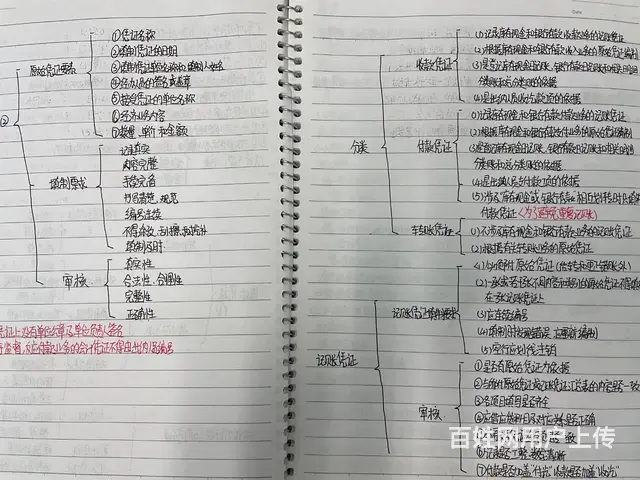 原始凭证要素
①凭证名称
②填制凭证的日期
③填制凭证单位名称和填制人姓名
④经办人员的签名或盖章
⑤接受凭证的单位名称
⑥经济业务内容
⑦数量、单价和金额
②
填制要求
记录真实
内容完整
手续完备
书写清楚、规范
编号连续
不得涂改、刮擦、挖补
填制及时
审核
真实性
合法性、合理性
完整性
正确性
分类
收款凭证
(1)记录库存现金和银行存款收款业务的记账凭证
(2)根据库存现金和银行存款收入业务的原始凭证编制
(3)是登记库存现金日记账、银行存款日记账和
分类账和总分类账的依据
(4)是出纳人员收讫款项的依据
付款凭证
(1)记录库存现金和银行存款付款业务的记账凭证
(2)根据库存现金和银行存款付出业务的原始凭证编制
(3)是登记库存现金日记账、银行存款日记账和
分类账和总分类账的依据
(4)是出纳人员支付款项的依据
(5)涉及"库存现金"或"银行存款"相互划转时只填制
付款凭证(为了避免重复记账)
转账凭证
(1)不涉及库存现金和银行存款业务的记账凭证
(2)根据有关转账业务的原始凭证
记账凭证
记账凭证填制要求
(1)必须附原始凭证(结转和更正错账除外)
在一张记账凭证上
(3)应连续编号
(4)填制时发现错误,应重新编制
(5)空行应划线注销
审核
①是否有原始凭证为依据
②与所附原始凭证或记账凭证汇总表的内容是否一致
③各项目填写是否齐全
④应借应贷科目及对应关系是否正确
百姓网用户上传